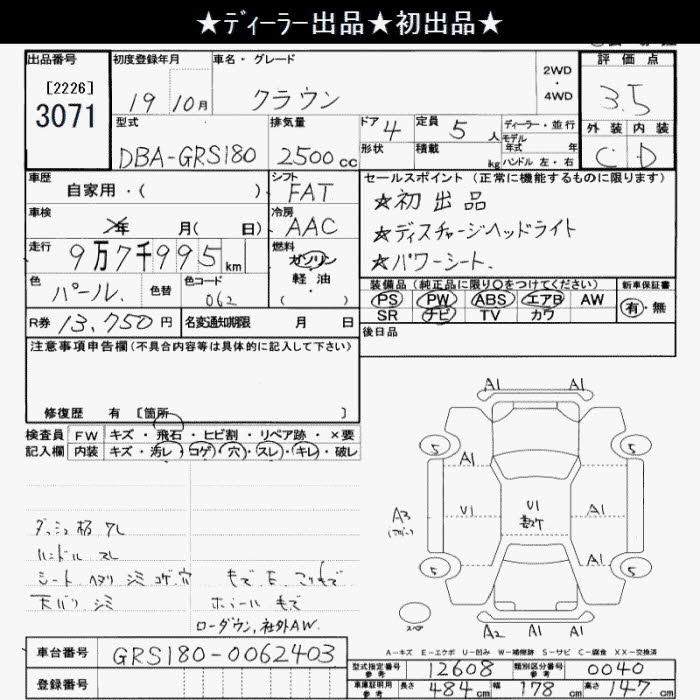 ★ディーラー出品★初出品★
出品番号 初度登録年月 車名・グレード 2WD・4WD 評価点
[2226]
3071
19 10月 クラウン 3.5
型式 排気量 ドア 4 定員 5人 ディーラー・並行 外装 内装
DBA-GRS180 2500cc 形状 積載 kg モデル年式 年 C D
ハンドル 左・右
車歴 自家用・( ) シフト FAT セールスポイント (正常に機能するものに限ります)
★初出品
車検 年 月( 日) 冷房 AAC ★ディスチャージヘッドライト
走行 9万7千995km 燃料 ガソリン ★パワーシート、
軽油
・( )
色 パール、 色替 色コード 062
装備品 (純正品に限り○をつけてください) 新車保証書
PS PW ABS エアB AW 有・無
SR ナビ TV カワ
R券 13,750円 名変通知期限 月 日 後日品
注意事項申告欄(不具合内容等は具体的に記入して下さい)
修復歴 有 〔箇所 〕
検査員 FW キズ・飛石・ヒビ割・リペア跡・×要
記入欄 内装 キズ・汚レ・コゲ・穴・スレ・キレ・破レ
A1 A1
5 5
A1
A3 U1 U1 A1
A1
5 5
スペア A2 A1 A1
ハンドル スレ
シート ヘタリ シミ コゲ 穴
天バリ シミ ホイール モゲ
ローダウン,社外AW.
A−キズ E−エクボ U−凹み W−補修跡 S−サビ C−腐食 XX−交換済
車台番号 GRS180-0062403
型式指定番号参考 12608 類別区分番号参考 0040
登録番号 車庫証明用参考 長さ 484cm 幅 178cm 高さ 147cm